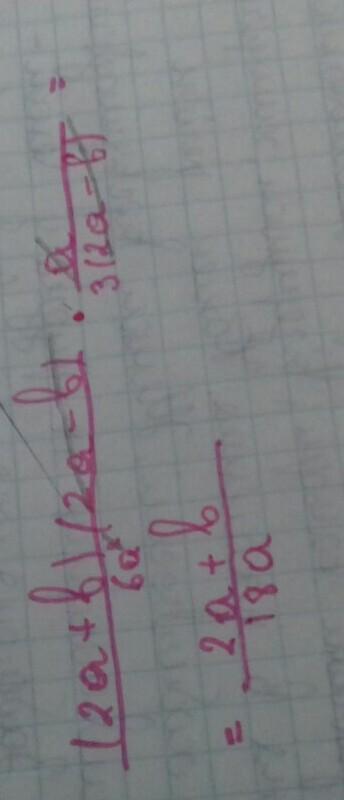 (2a+b)(2a-b)/6a² · a/3(2a-b) =
= 2a+b/18a